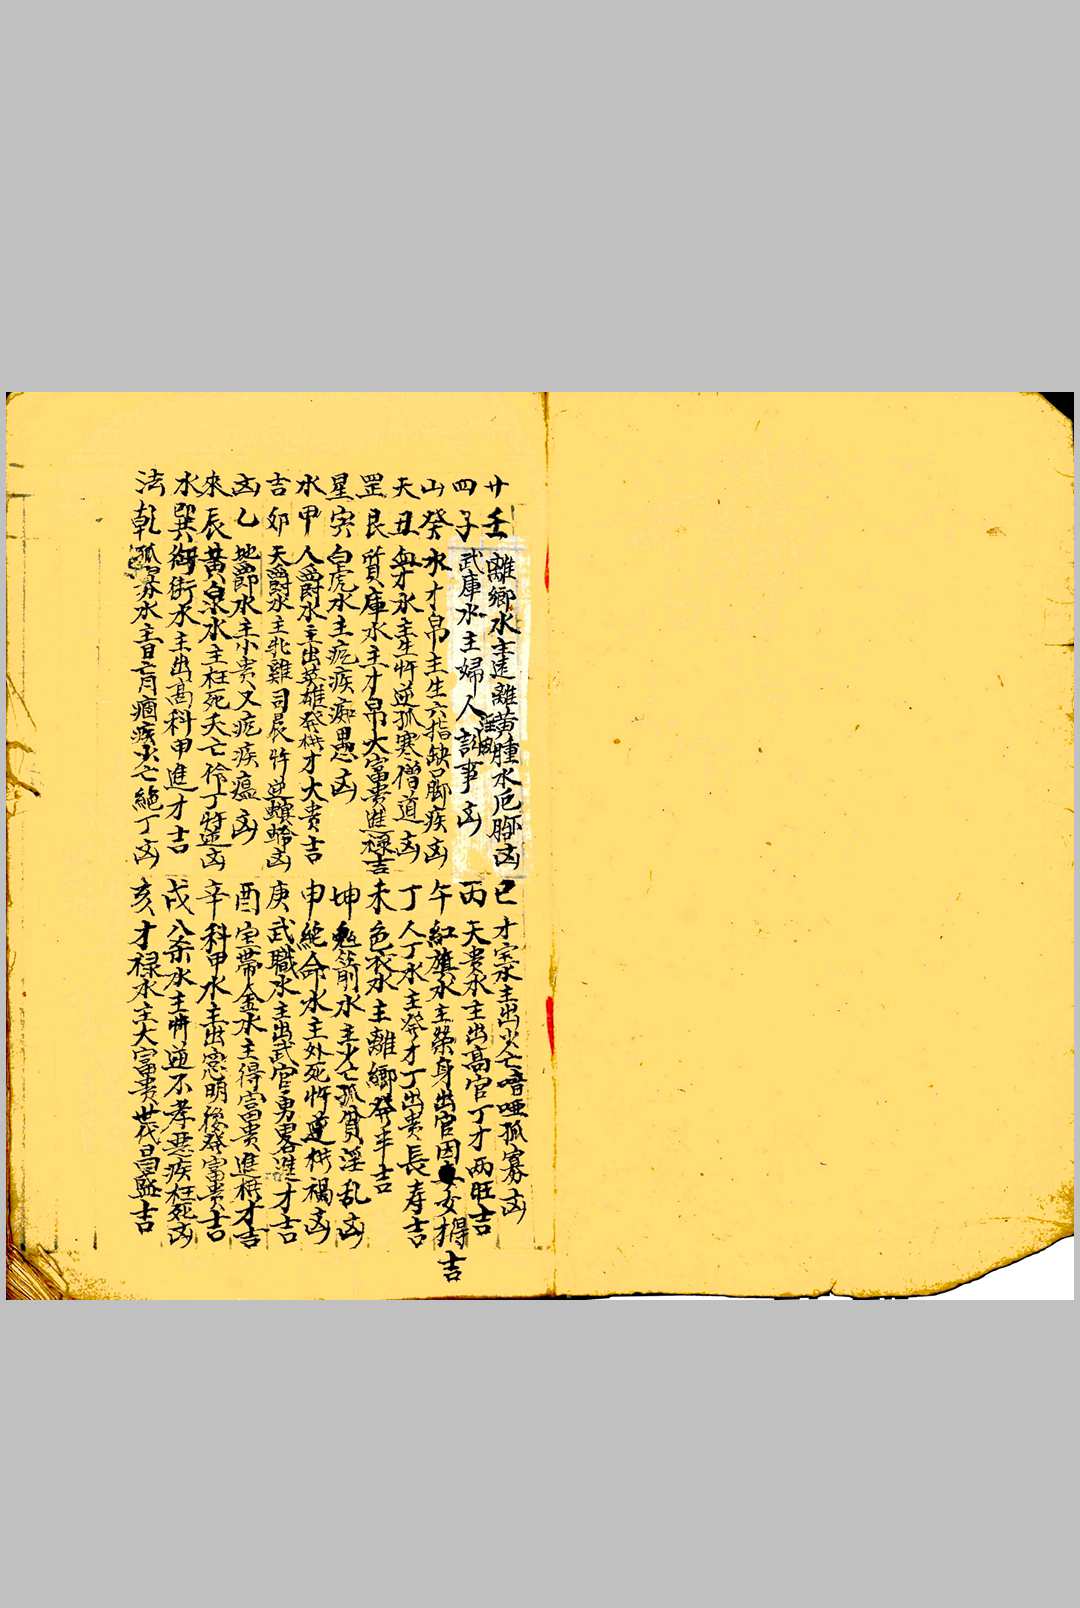 廿四山天罡星水吉凶來水法
壬離鄉水主遠離黃腫水厄腳凶
子武庫水主婦人訟事凶
癸水才帛主生六指缺脚疾凶
丑血才水主生忤逆孤寒僧道凶
艮質庫水主才帛大富貴進禄吉
寅白虎水主疙疾癡愚凶
甲人爵水主出英雄發横才大貴吉
卯天爵水主牝雞司晨忤逆螟蛉凶
乙地爵水主小貴又疙疾瘟凶
辰黃泉水主枉死夭亡伶丁忤逆凶
巽御街水主出高科甲進才吉
乾孤寡水主盲痼疾少亡絶丁凶
巳才宝水主出少亡喑啞孤寡凶
丙天貴水主出高官丁才兩旺吉
午紅旗水主榮身出官因女得才吉
丁人丁水主發才丁出貴長寿吉
未色衣水主離鄉發丰吉
坤箭水主少亡孤貧淫乱凶
申絶命水主外死忤逆横禍凶
庚武職水主出武官勇畧進才吉
酉宝带金水主得富貴進横才吉
辛科甲水主出聰明後發富貴吉
戌八杀水主忤逆不孝惡疾枉死凶
亥才禄水主大富貴世代昌盛吉